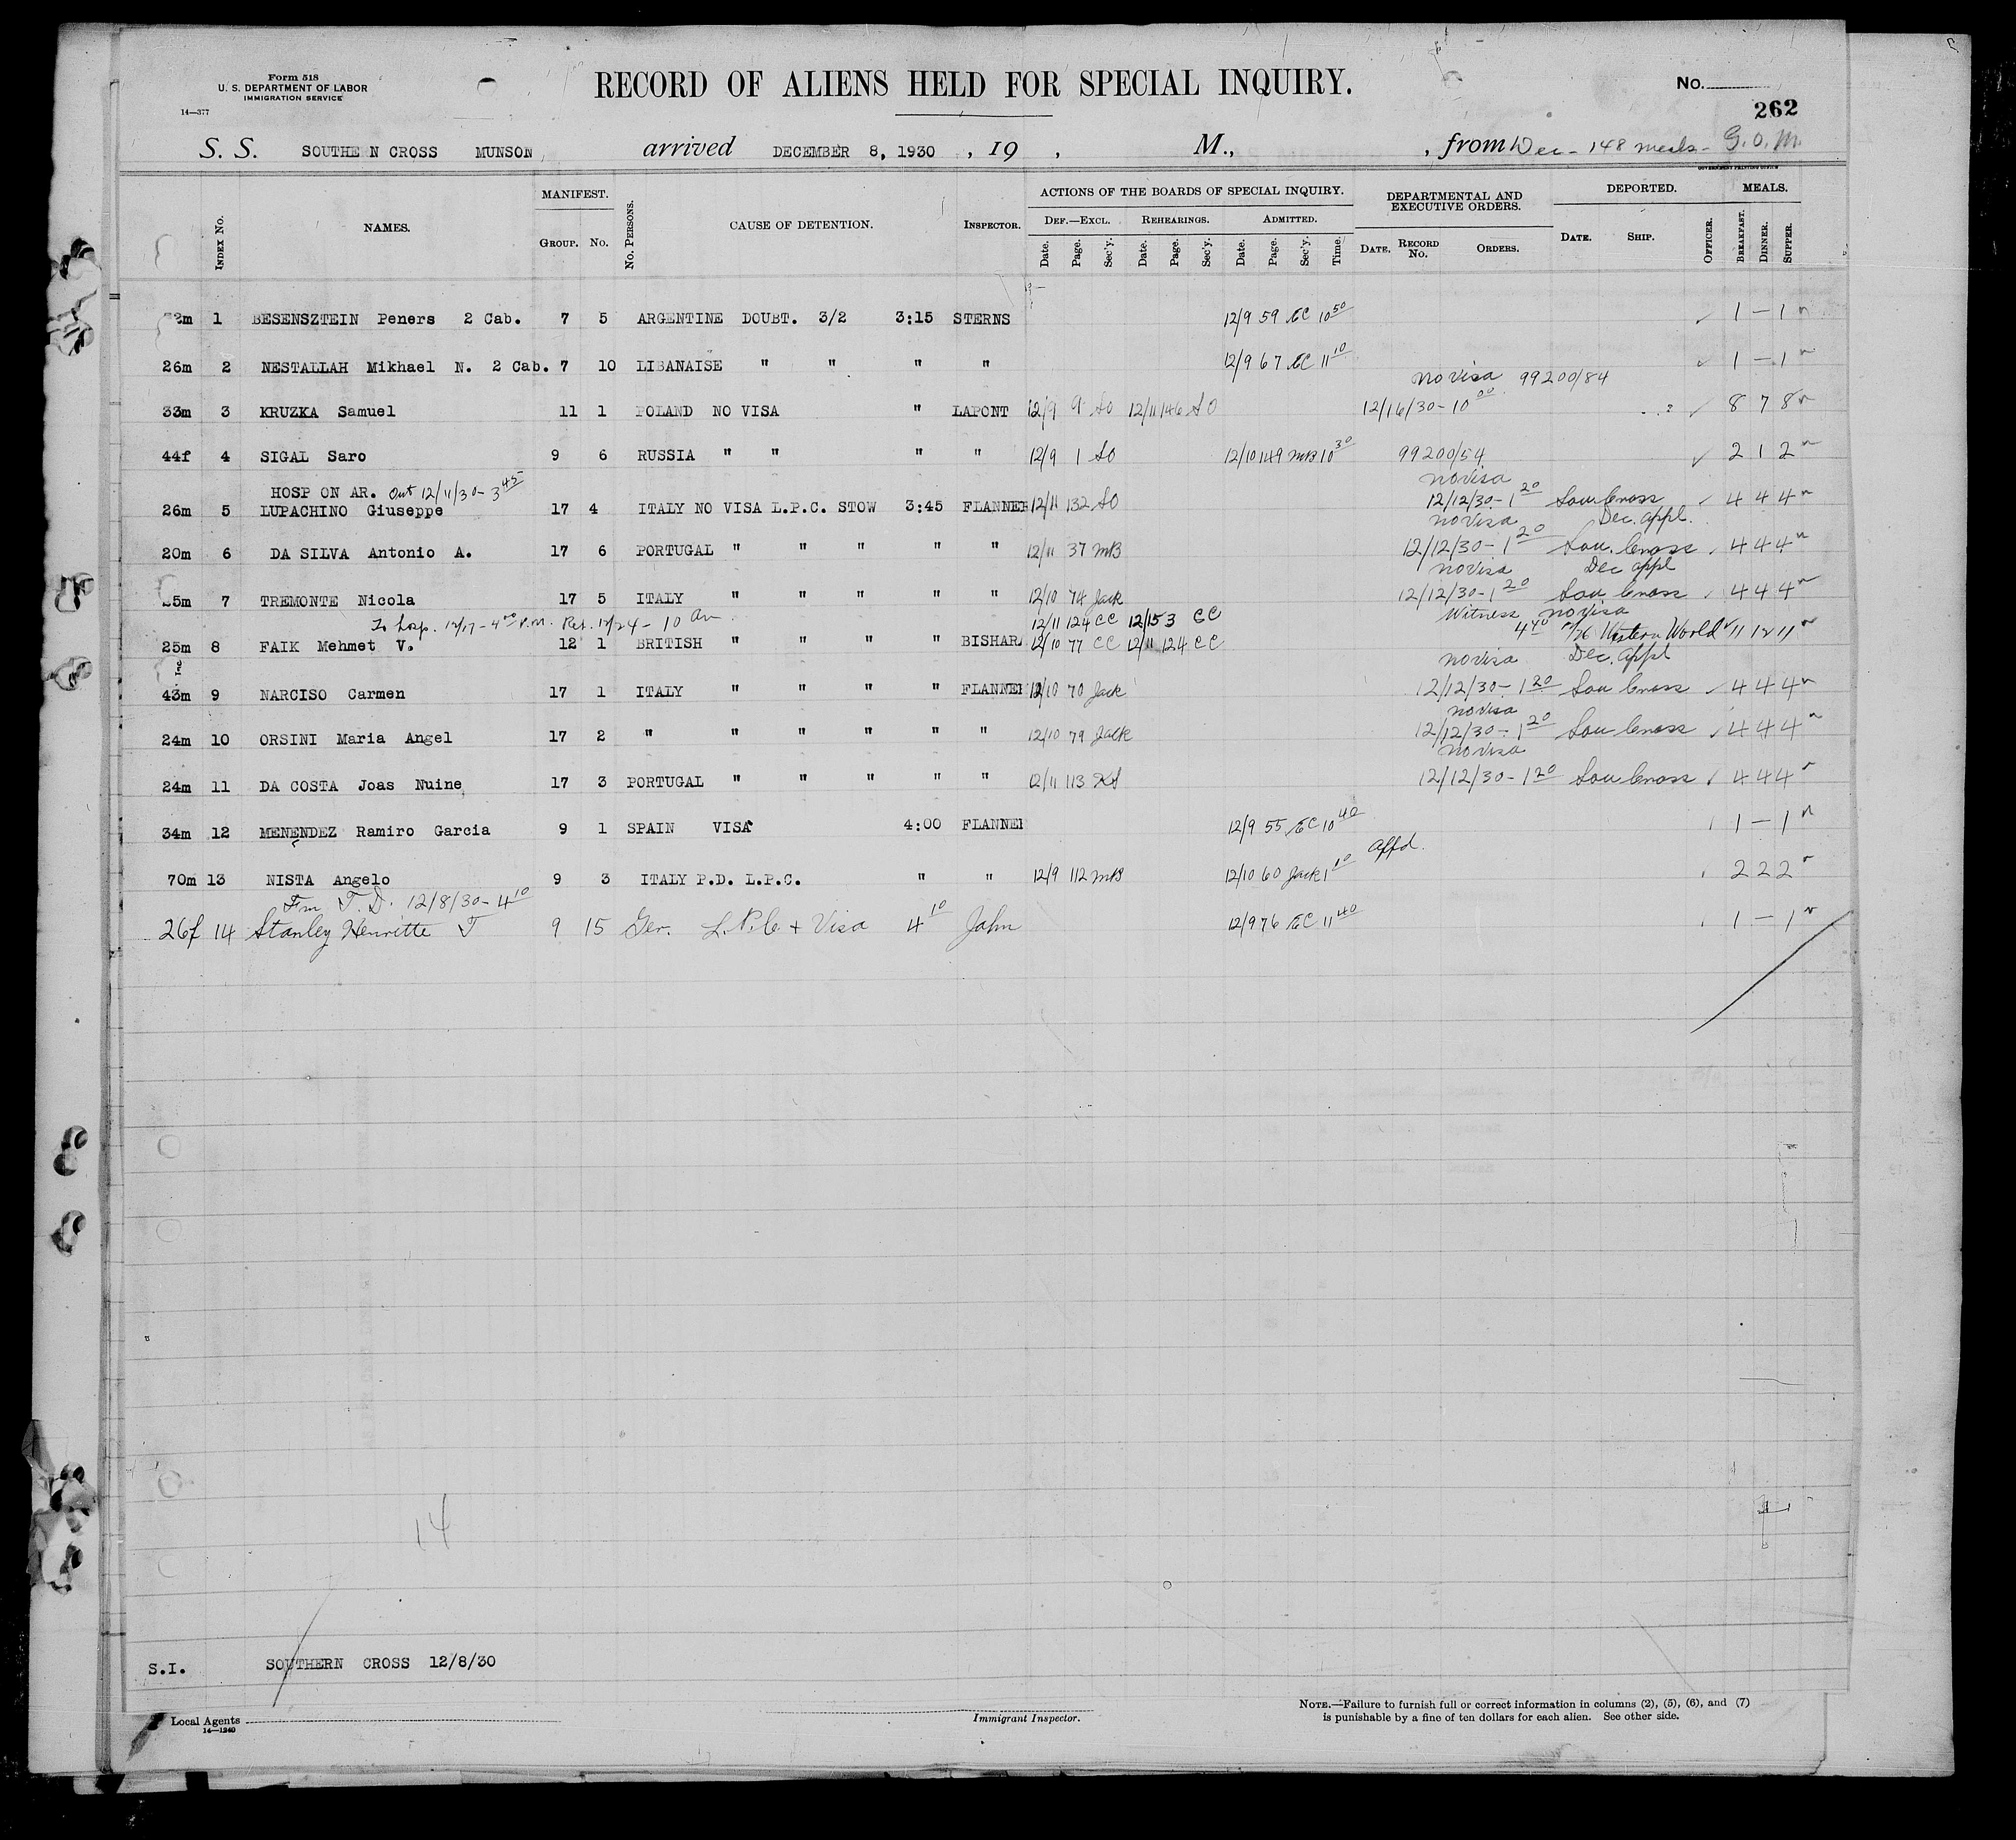 Form 518
U. S. DEPARTMENT OF LABOR
IMMIGRATION SERVICE
14—377
RECORD OF ALIENS HELD FOR SPECIAL INQUIRY.
No.
262
S. S. SOUTHE N CROSS MUNSON arrived DECEMBER 8, 1930 , 19 , M., , from Dec - 148 meals - G.O.M.
GOVERNMENT PRINTING OFFICE
INDEX NO. NAMES. MANIFEST. GROUP. NO. NO. PERSONS. CAUSE OF DETENTION. INSPECTOR. ACTIONS OF THE BOARDS OF SPECIAL INQUIRY. DEF.—EXCL. REHEARINGS. ADMITTED. DEPARTMENTAL AND EXECUTIVE ORDERS. DEPORTED. MEALS.
Date. Page. Sec'y. Date. Page. Sec'y. Date. Page. Sec'y. Time. DATE. RECORD No. ORDERS. DATE. SHIP. OFFICER. BREAKFAST. DINNER. SUPPER.
2m 1 BESENSZTEIN Peners 2 Cab. 7 5 ARGENTINE DOUBT. 3/2 3:15 STERNS 12/9 59 EC 10 50 1 — 1
26m 2 NESTALLAH Mikhael N. 2 Cab. 7 10 LIBANAISE " " " " 12/9 67 EC 11 10 1 — 1
no visa 99200/84
33m 3 KRUZKA Samuel 11 1 POLAND NO VISA " LAPONT 12/9 9 SO 12/11 146 SO 12/16/30 - 10 00 8 7 8
44f 4 SIGAL Saro 9 6 RUSSIA " " " " 12/9 1 SO 12/10 149 MB 10 30 99200/54 2 1 2
HOSP ON AR. Out 12/11/30 - 3 45 no visa
26m 5 LUPACHINO Giuseppe 17 4 ITALY NO VISA L.P.C. STOW 3:45 FLANNER 12/11 132 SO 12/12/30 - 1 20 Sou Cross 4 4 4
no visa Dec. appl.
20m 6 DA SILVA Antonio A. 17 6 PORTUGAL " " " " " 12/11 37 MB 12/12/30 - 1 20 Sou. Cross 4 4 4
no visa Dec appl
25m 7 TREMONTE Nicola 17 5 ITALY " " " " " 12/10 74 Jack 12/12/30 - 1 20 Sou Cross 4 4 4
To hosp. 12/17 - 4 00 P.M. Ret. 12/24 - 10 am 12/11 124 CC 12/15 3 CC Witness no visa
25m 8 FAIK Mehmet V. 12 1 BRITISH " " " " BISHARA 12/10 77 CC 12/11 124 CC 4 40 Western World 11 12 11
no visa Dec. appl
43m 9 NARCISO Carmen 17 1 ITALY " " " " FLANNER 12/10 70 Jack 12/12/30 - 1 20 Sou Cross 4 4 4
no visa
24m 10 ORSINI Maria Angel 17 2 " " " " " " 12/10 79 Jack 12/12/30 - 1 20 Sou Cross 4 4 4
no visa
24m 11 DA COSTA Joas Nuine 17 3 PORTUGAL " " " " " 12/11 113 12/12/30 - 1 20 Sou Cross 4 4 4
34m 12 MENENDEZ Ramiro Garcia 9 1 SPAIN VISA 4:00 FLANNER 12/9 55 EC 10 40 1 — 1
affd.
70m 13 NISTA Angelo 9 3 ITALY P.D. L.P.C. " " 12/9 112 MB 12/10 60 Jack 1 10 2 2 2
Fm T.D. 12/8/30 - 4 10
26f 14 Stanley Henritte F 9 15 Ger. L.P.C. + Visa 4 10 Jahn 12/9 76 EC 11 40 1 — 1
14
S.I. SOUTHERN CROSS 12/8/30
Local Agents
14—1240
Immigrant Inspector.
NOTE.—Failure to furnish full or correct information in columns (2), (5), (6), and (7)
is punishable by a fine of ten dollars for each alien. See other side.